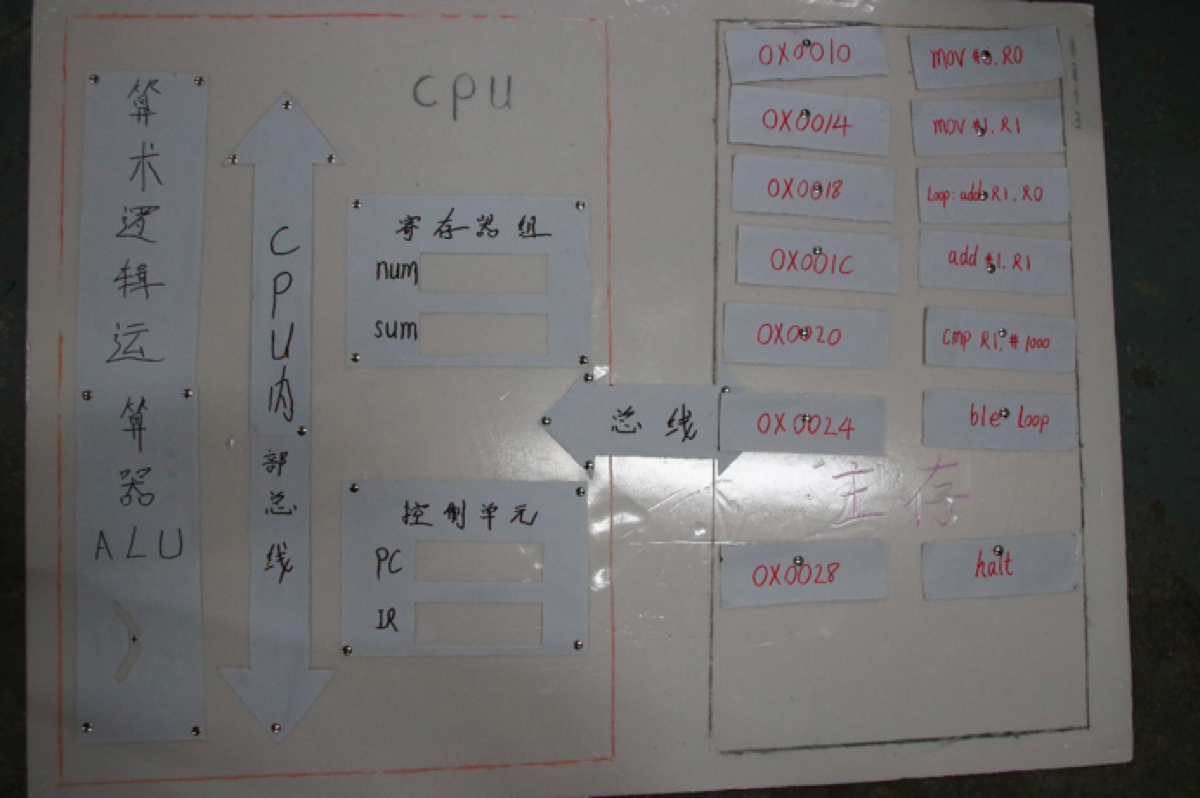 算术逻辑运算器ALU
CPU内部总线
cpu
寄存器组
num
sum
总线
控制单元
PC
IR
0X0010 mov #0.R0
0X0014 mov #1.R1
0X0018 Loop:add R1.R0
0X001C add #1.R1
0X0020 cmp R1.#1000
0X0024 ble loop
主存
0X0028 halt